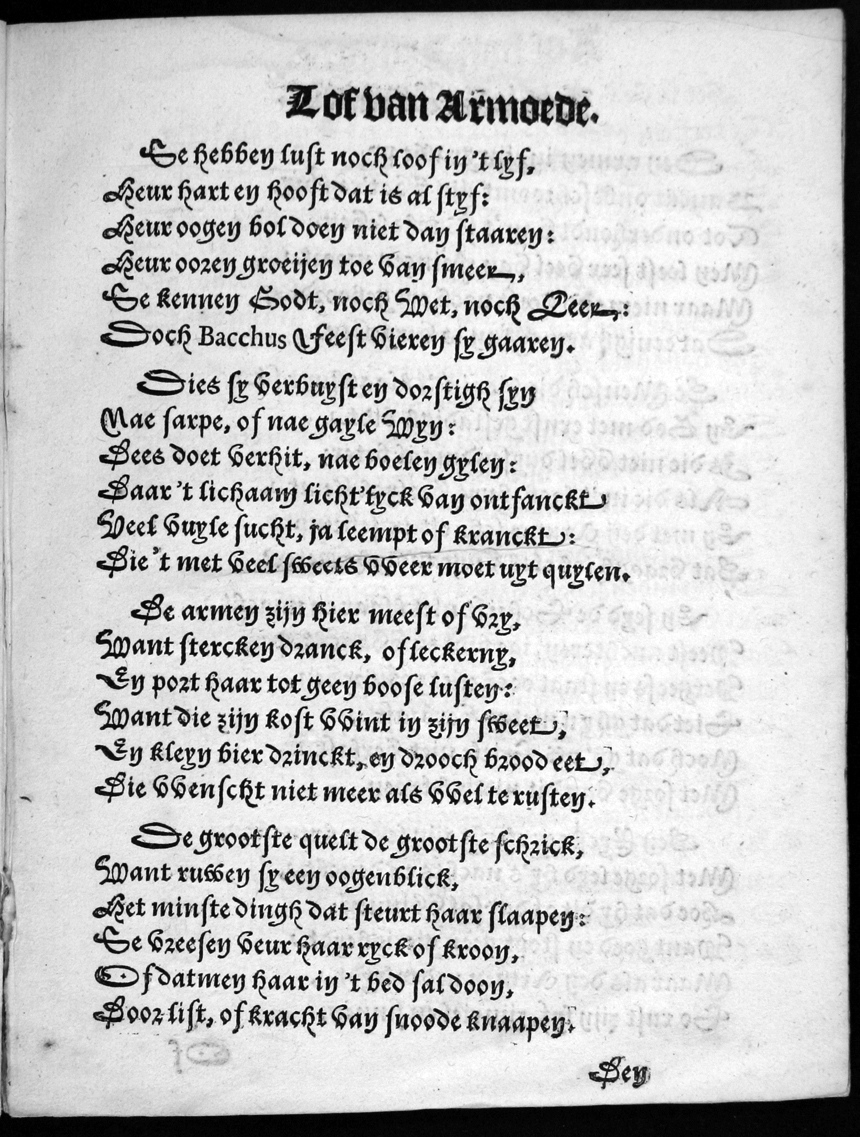 Lof van Armoede.
Se hebben lust noch loof in 't lyf,
Heur hart en hooft dat is al styf:
Heur oogen bol doen niet dan staaren:
Heur ooren groeijen toe van smeer,
Se kennen Godt, noch Wet, noch Leer:
Doch Bacchus Feest vieren sy gaaren.
Dies sy verbuyst en dorstigh syn
Nae sarpe, of nae gayle Wyn:
Dees doet verhit, nae boelen gylen:
Daar 't lichaam licht'lyck van ontfanckt
Veel vuyle sucht, ja leempt of kranckt:
Die 't met veel sweets vveer moet uyt quylen.
De armen zijn hier meest of vry,
Want stercken dranck, of leckerny,
En port haar tot geen boose lusten:
Want die zijn kost vvint in zijn sweet,
En kleyn bier drinckt, en drooch brood eet,
Die vvenscht niet meer als vvel te rusten.
De grootste quelt de grootste schrick,
Want rusten sy een oogenblick,
Het minste dingh dat steurt haar slaapen:
Se vreesen veur haar ryck of kroon,
Of datmen haar in 't bed sal doon,
Door list, of kracht van snoode knaapen.
Den